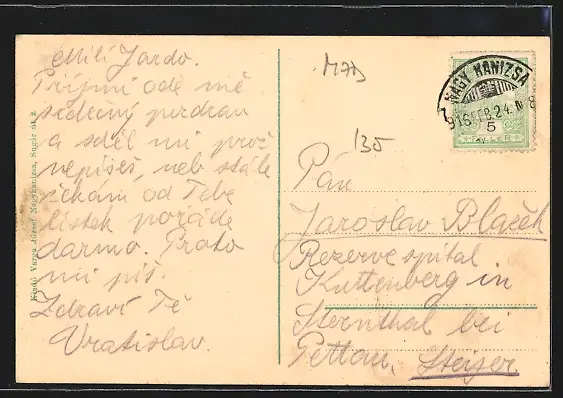 Milí Jardo.
Přijmi ode mě
srdečný pozdrav
a sděl mi proč
nepíšeš, neb stále
čekám od Tebe
lístek pořáde
darmo. Proto
mi piš.
Zdraví Tě
Vratislav.
Kiadó Varga József Nagykanizsa, Sugár út 2.
NAGY KANIZSA
916 FEB. 24. N 8
5
135
Pán
Jaroslav Blaček
Rezervespital
Kuttenberg in
Sternthal bei
Pettau, Steier